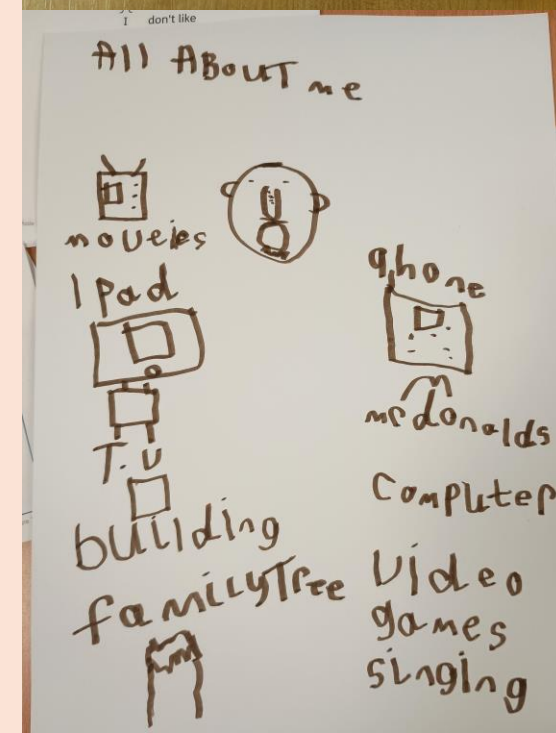 I don't like
All ABouT me
moveies
IPad
T.U
building
familyTree
phone
mcdonalds
Computer
Video
games
singing